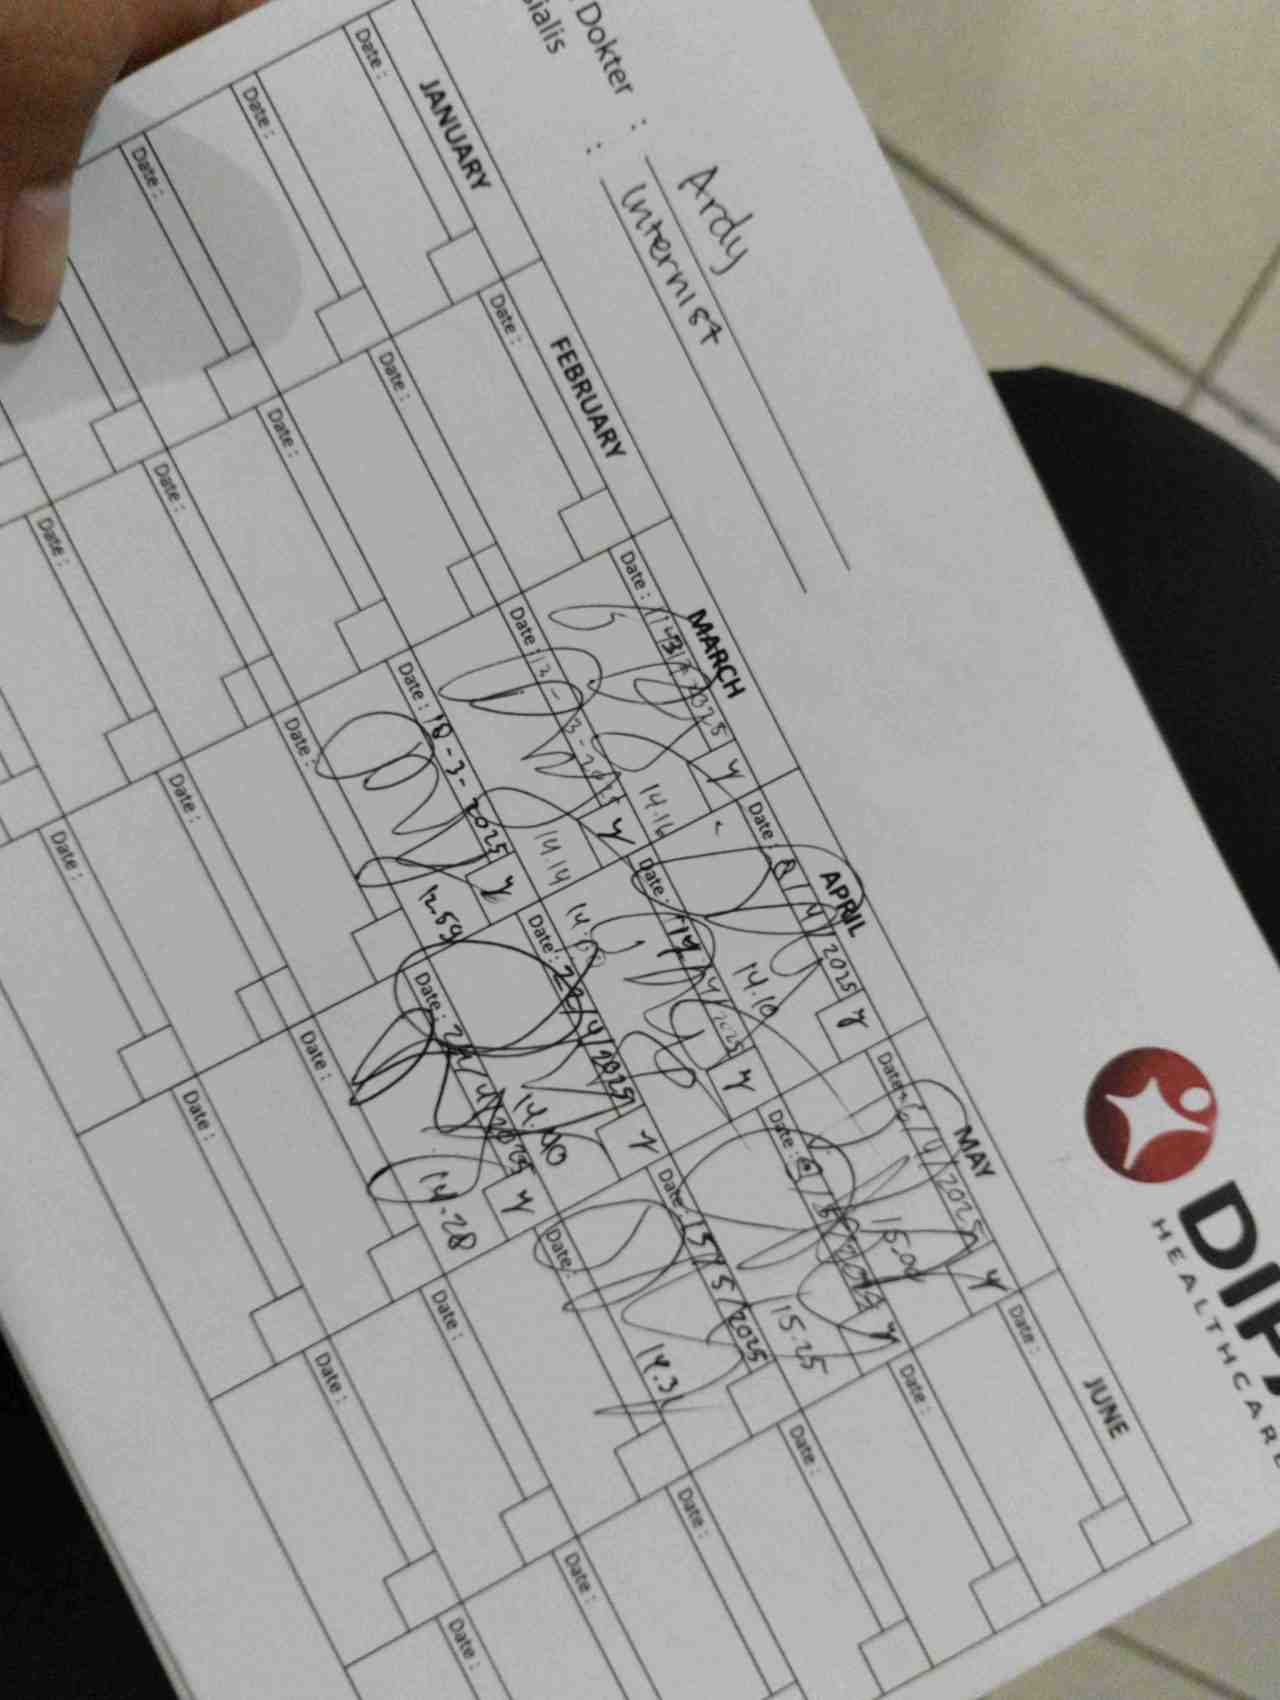 Dokter : Ardy
ialis : Internist
DIPA
HEALTHCARE
JANUARY
FEBRUARY
MARCH
APRIL
MAY
JUNE
Date :
Date :
Date : 2025 y
14.16
Date : 8/4/2025 y
14.10
Date : 6/4/2025 y
15.00
Date :
Date :
Date :
Date : 13-3-2025 y
14.14
Date : 14/4/2025 y
Date : y
15.25
Date :
Date :
Date :
Date : 18-3-2025 y
12.59
Date : 22/4/2025 y
14.40
Date : 15/5/2025
14.31
Date :
Date :
Date :
Date : 24/4/2025 y
14.28
Date :
Date :
Date :
Date :
Date :
Date :
Date :
Date :
Date :
Date :